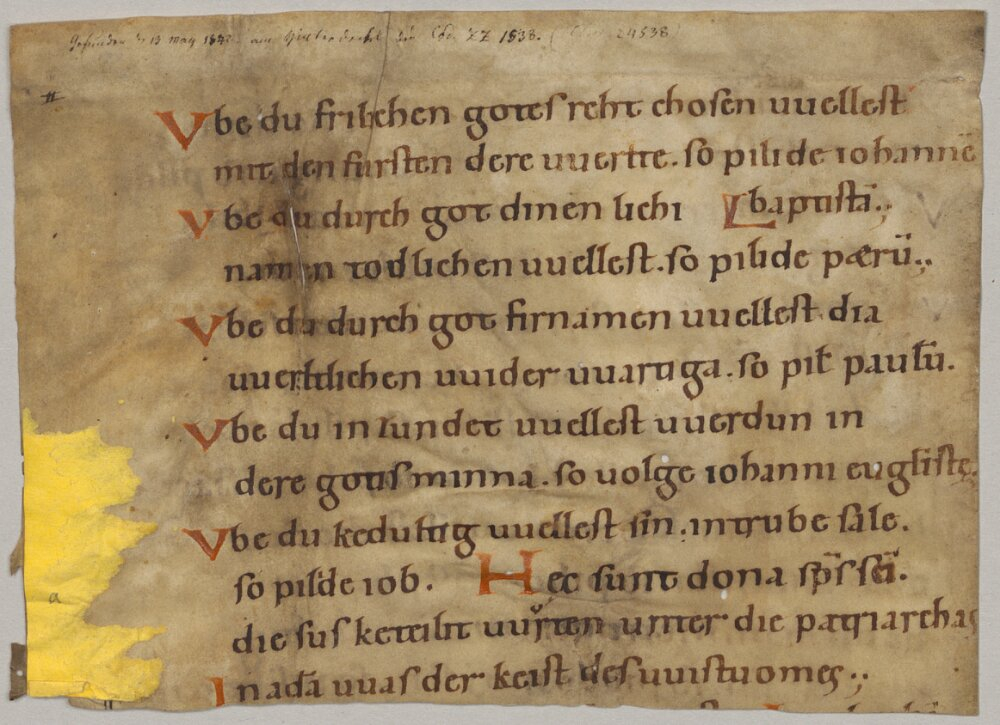 Gefunden d. 13 May 18 am Hinterdeckel des Cod. ZZ 1538. ( 24538)
Vbe du frilichen gotes reht chosen uuellest
mit den fursten dere uuerlte. so pilide iohannē
Vbe du durch got dinen lichi baptistā.,
namen todlichen uuellest. so pilide petrū.,
Vbe du durch got firnamen uuellest dia
uuerltlichen uuider uuartiga. so pił paulū.
Vbe du inzundet uuellest uuerdun in
dere gotis minna. so uolge iohanni eugliste.
Vbe du kedultig uuellest sin. in trubesale.
so pilde iob. Hec sunt dona sp̄s sc̄i.
die sus keteilit uurten unter die patriarchas
In adā uuas der keist des uuistuomes.,
a